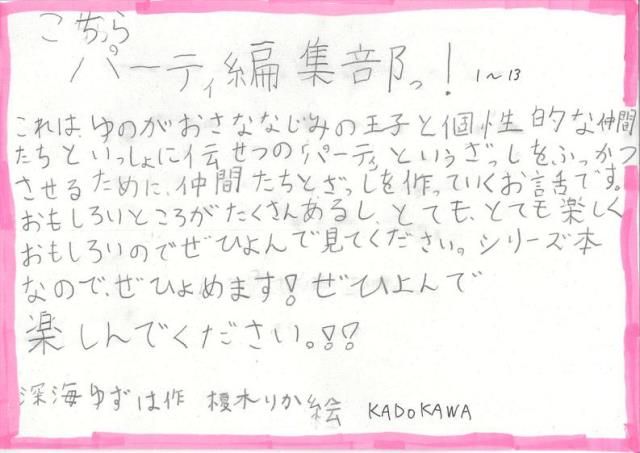 こちら
パーティ編集部っ! 1~13
これは、ゆのがおさななじみの王子と個性的な仲間
たちといっしょに伝せつの「パーティ」というざっしをふっかつ
させるために、仲間たちとざっしを作っていくお話です。
おもしろいところがたくさんあるし、とても、とても楽しく
おもしろいのでぜひよんで見てください。シリーズ本
なので、ぜひよめます!ぜひよんで
楽しんでください。!!
深海ゆずは作 榎木りか絵 KADOKAWA